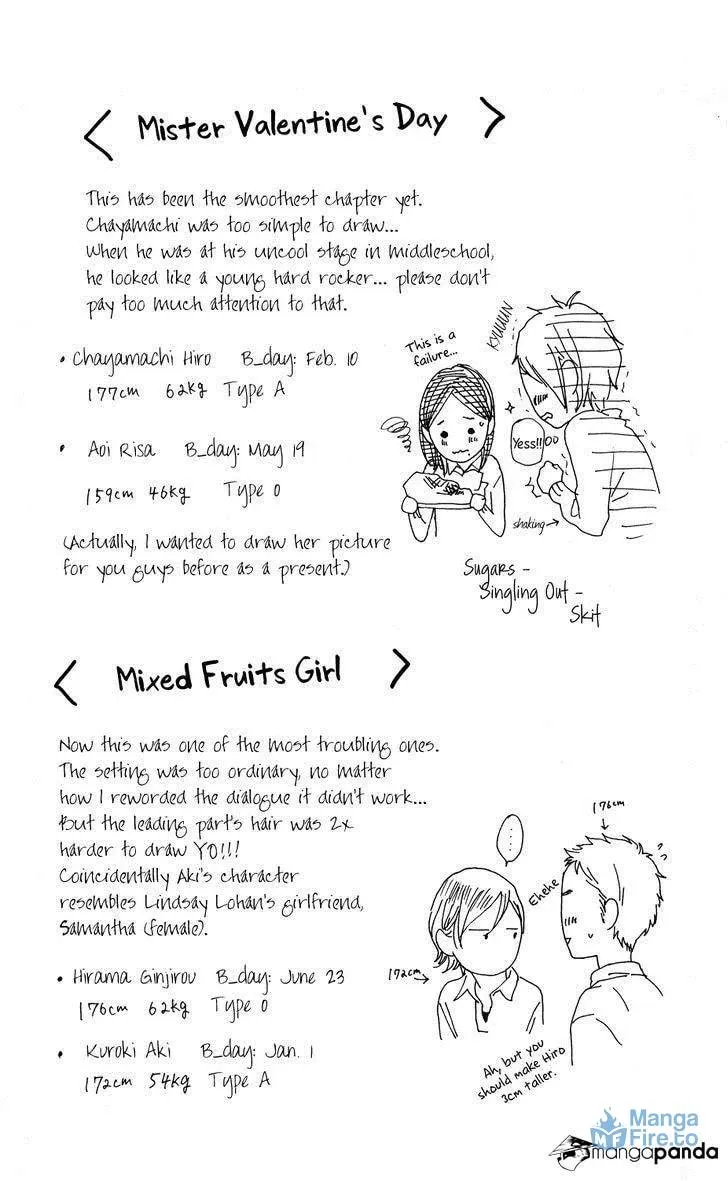 < Mister Valentine's Day >
This has been the smoothest chapter yet.
Chayamachi was too simple to draw...
When he was at his uncool stage in middleschool,
he looked like a young hard rocker... please don't
pay too much attention to that.
• Chayamachi Hiro B_day: Feb. 10
177cm 62kg Type A
• Aoi Risa B_day: May 19
159cm 46kg Type O
(Actually, I wanted to draw her picture
for you guys before as a present.)
This is a
failure...
KYUUUUN
Yess!!
shaking→
Sugars -
Singling Out -
Skit
< Mixed Fruits Girl >
Now this was one of the most troubling ones.
The setting was too ordinary, no matter
how I reworded the dialogue it didn't work...
But the leading part's hair was 2x
harder to draw YO!!!
Coincidentally Aki's character
resembles Lindsay Lohan's girlfriend,
Samantha (female).
• Hirama Ginjirou B_day: June 23
176cm 62kg Type O
• Kuroki Aki B_day: Jan. 1
172cm 54kg Type A
....
176cm
Ehehe
172cm→
Ah, but you
should make Hiro
3cm taller.
Manga
Fire.to
MF
mangapanda